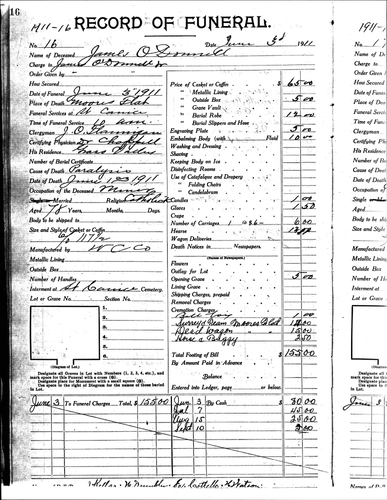 16
1911-16
RECORD OF FUNERAL.
No. 16 Name of Deceased James O'Donnell Date June 3d 1911
Charge to James O'Donnell Jr
Order Given by
How Secured
Date of Funeral June 5 1911
Place of Death Moores Flat
Funeral Services at St Canice
Time of Funeral Service 10 am
Clergyman J. O. Flannigan
Certifying Physician Dr Chappell
His Residence
Number of Burial Certificate
Cause of Death Paralysis
Date of Death June 1911
Occupation of the Deceased Miner
Single or Married Religion Catholic
Aged 78 Years, Months, Days.
Body to be shipped to
Size and Style of Casket or Coffin
6/0 117/2
Manufactured by W C Co
Metallic Lining
Outside Box
Number of Handles
Interment at St Canice Cemetery.
Lot or Grave No. Section No.
1.
2.
3.
4.
5.
6.
Designate all Graves in Lot with Numbers (1, 2, 3, 4, etc.), and mark space for this Funeral with a cross (X).
Designate place for Monument with a small square (□).
Use space to the right of Diagram for the names of those buried in Lot.
Price of Casket or Coffin $ 65.00
" Metallic Lining
" Outside Box 5.00
" Grave Vault
" Burial Robe 12.00
" Burial Slippers and Hose
Engraving Plate 3.00
Embalming Body (with Fluid 10.00
Washing and Dressing
Shaving
Keeping Body on Ice
Disinfecting Rooms
Use of Catafalque and Drapery
" Folding Chairs
" Candelabrum
Candles 1.00
Gloves 1.50
Crape
Number of Carriages 6.00
Hearse
Wagon Deliveries
Death Notices in Newspapers.
(Names of Newspapers)
Flowers
Outlay for Lot
Opening Grave 5.00
Lining Grave
Shipping Charges, prepaid
Removal Charges
Cremation Charges
1.00
Surrys Team Moores Flat
Dead Wagon 15.00
Horse & Buggy 2.50
Total Footing of Bill 155.00
By Amount Paid in Advance
Balance
Entered into Ledger, page or below.
June 3 To Funeral Charges Total, $ 155.00
Jun 3 By Cash $ 30.00
Jul 7 45.00
Aug 15
Sept 10
1911-
No.
Charge to
Order Given by
How Secured
Date of Funeral
Place of Death
Funeral Services
Time of Funeral
Clergyman
Certifying Physician
His Residence
Number of Burial
Cause of Death
Date of Death
Occupation of the
Aged
Body to be shipped
Size and Style of
Manufactured by
Metallic Lining
Outside Box
Number of Handles
Interment at
Lot or Grave No.